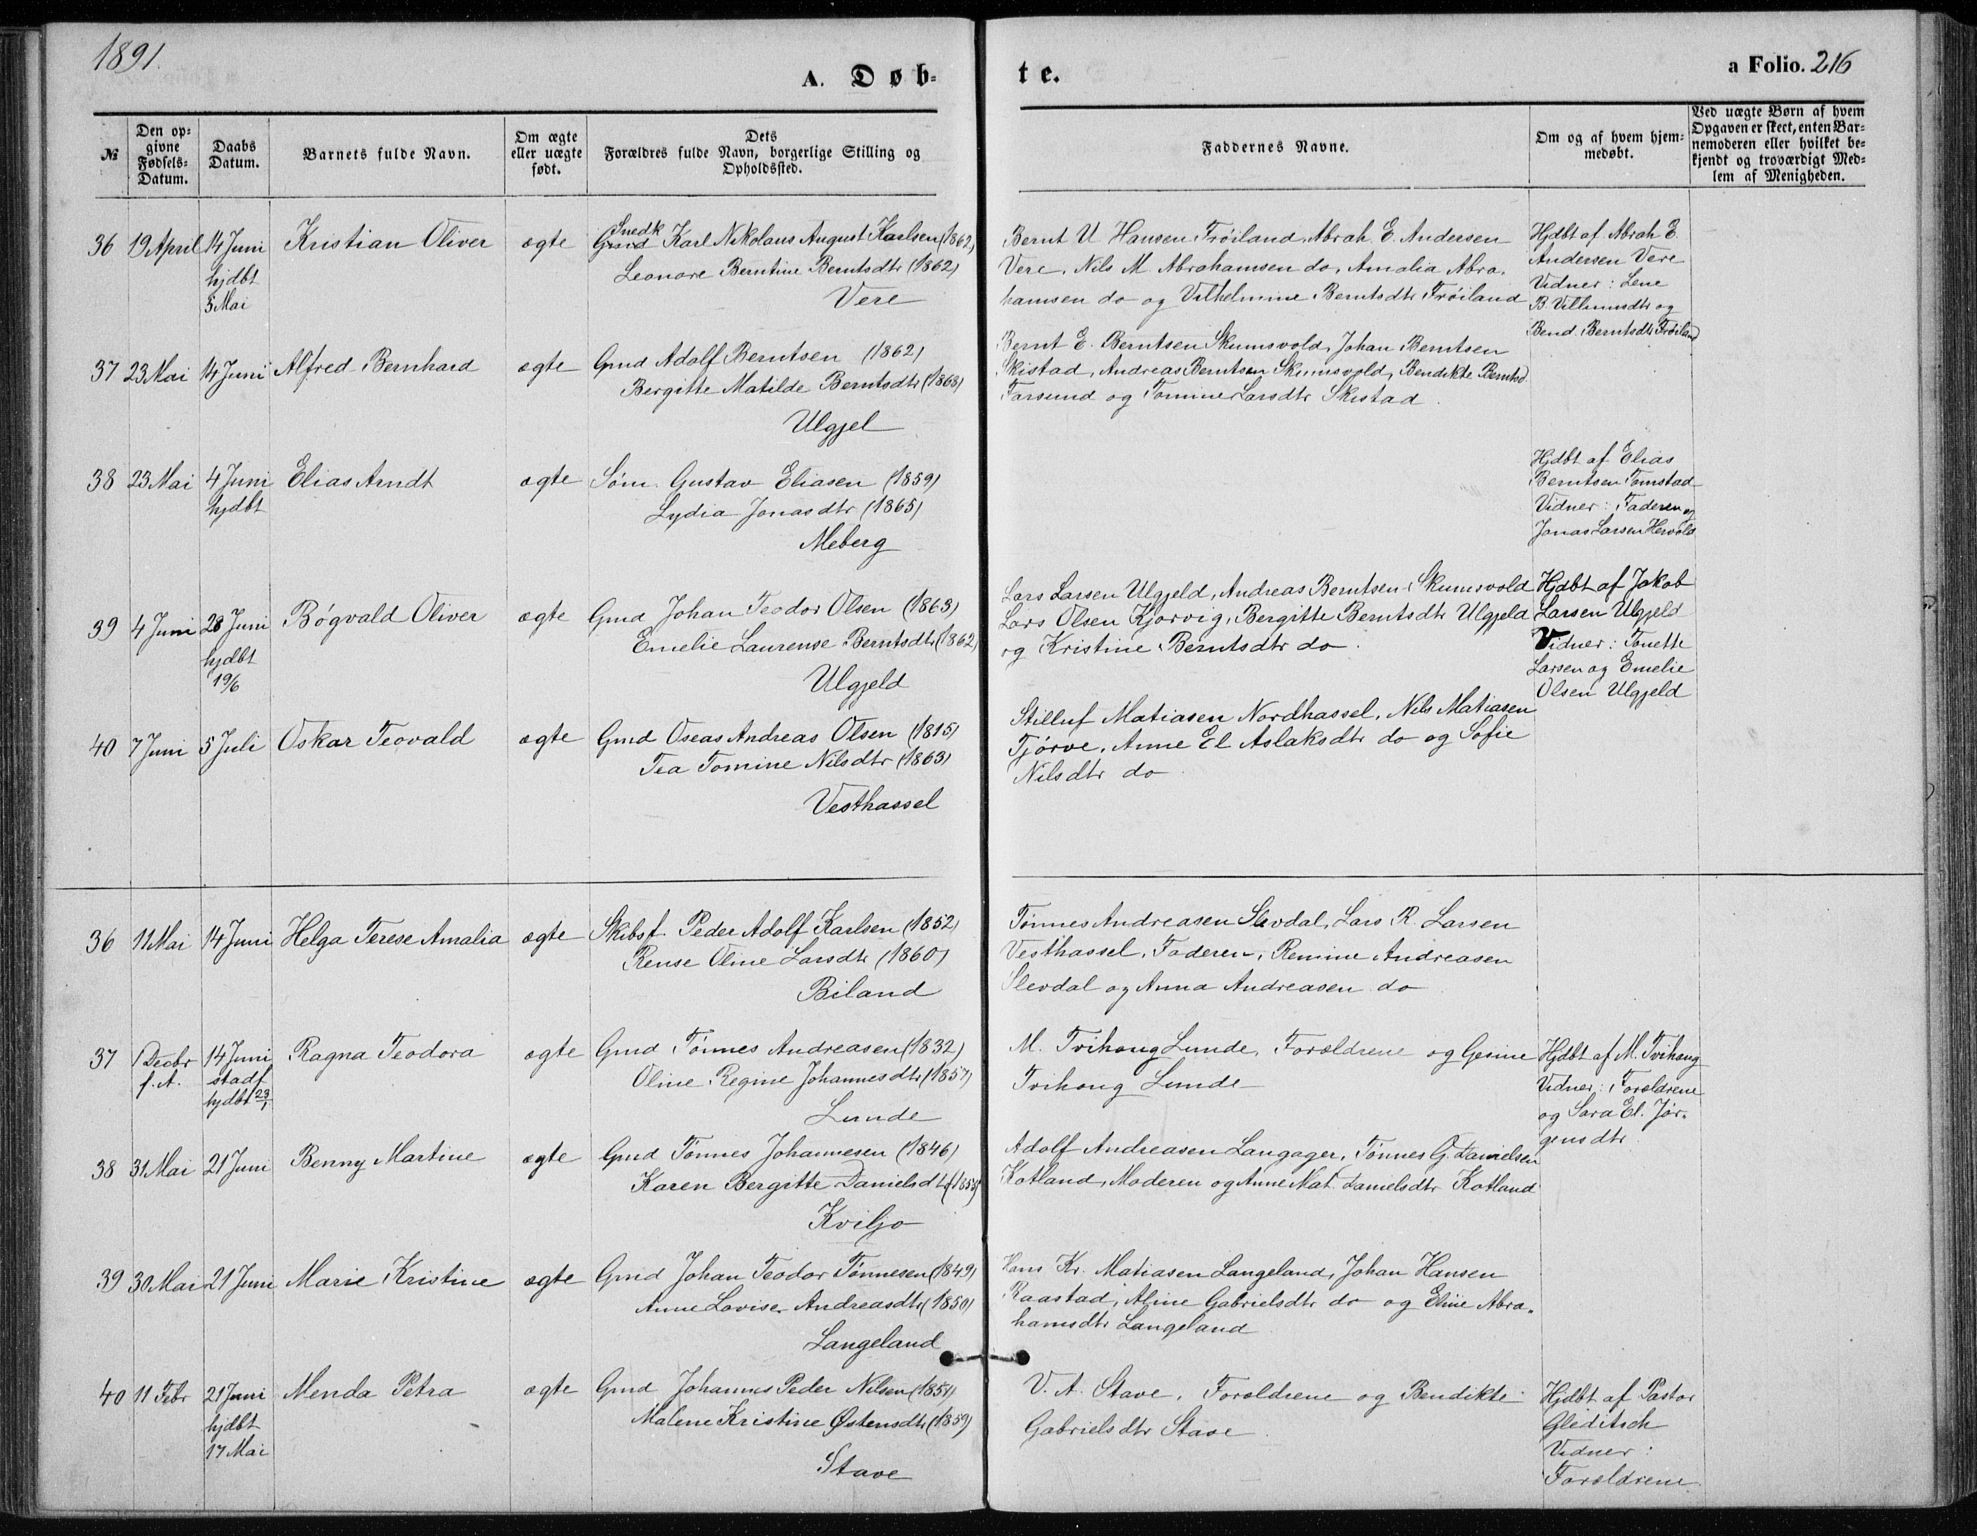 1891.
A. Døb-
te.
a Folio. 216
№
Den op-
givne
Fødsels-
Datum.
Daabs
Datum.
Barnets fulde Navn.
Om ægte
eller uægte
født.
Dets
Forældres fulde Navn, borgerlige Stilling og
Opholdssted.
Faddernes Navne.
Om og af hvem hjem-
medøbt.
Ved uægte Børn af hvem
Opgaven er skeet, enten Bar-
nemoderen eller hvilket be-
kjendt og troværdigt Med-
lem af Menigheden.
36 19 April 14 Juni
hjdbt
5 Mai
Kristian Oliver
ægte
Snedk
Gmd Karl Nikolaus August Karlsen (1862)
Leonore Berntine Berntsdtr (1862)
Vere
Bernt U Hansen Frøiland, Abrah E. Andersen
Vere, Nils M Abrahamsen do, Amalia Abra-
hamsen do og Vilhelmine Berntsdtr Frøiland
Hjdbt af Abrah E.
Andersen Vere
Vidner: Lene
B. Villumsdtr og
Bend. Berntsdtr Frøiland
37 23 Mai 14 Juni
Alfred Bernhard
ægte
Gmd Adolf Berntsen (1862)
Bergitte Matilde Berntsdtr (1868)
Ulgjel
Bernt E. Berntsen Skumsvold, Johan Berntsen
Skistad, Andreas Berntsen Skumsvold, Bendikte Berntsd
Farsund og Tomine Larsdtr Skistad.
38 23 Mai 4 Juni
hjdbt
Elias Arndt
ægte
Søm. Gustav Eliasen (1859)
Lydia Jonasdtr (1865)
Meberg
Hjdbt af Elias
Berntsen Tomstad
Vidner: Faderen og
Jonas Larsen Hervold
39 4 Juni 28 Juni
hjdbt
19/6
Bøgvald Oliver
ægte
Gmd Johan Teodor Olsen (1863)
Emelie Laurense Berntsdtr (1862)
Ulgjeld
Lars Larsen Ulgjeld, Andreas Berntsen Skumsvold
Lars Olsen Kjørvig, Bergitte Berntsdtr Ulgjeld
og Kristine Berntsdtr do.
Hjdbt af Jakob
Larsen Ulgjeld
Vidner: Tonette
Larsen og Emelie
Olsen Ulgjeld
40 7 Juni 5 Juli
Oskar Teovald
ægte
Gmd Oseas Andreas Olsen (1815)
Tea Tomine Nilsdtr (1863)
Vesthassel
Stilluf Matiasen Nordhassel, Nils Matiasen
Tjørve, Anne El Aslaksdtr do og Sofie
Nilsdtr do.
36 11 Mai 14 Juni
Helga Terese Amalia
ægte
Skibsf. Peder Adolf Karlsen (1852)
Rense Oline Larsdtr (1860)
Biland
Tønnes Andreasen Slevdal, Lars R. Larsen
Vesthassel, Faderen, Remine Andreasen
Slevdal og Anna Andreasen do
37 1 Decbr
f. A.
14 Juni
stadf
hjdbt 23/1
Ragna Teodora
ægte
Gmd Tønnes Andreasen (1832)
Oline Regine Johannesdtr (1857)
Lunde
M. Tvihoug Lunde, Forældrene og Gesine
Tvihoug Lunde
Hjdbt af M. Tvihoug
Vidner: Forældrene
og Sara El. Jør-
gensdtr.
38 31 Mai 21 Juni
Benny Martine
ægte
Gmd Tønnes Johannesen (1846)
Karen Bergitte Danielsdtr (1853)
Kviljo
Adolf Andreasen Langager, Tønnes G. Danielsen
Kotland, Moderen og Anne Mat. Danielsdtr Kotland
39 30 Mai 21 Juni
Marie Kristine
ægte
Gmd Johan Teodor Tønnesen (1849)
Anne Lovise Andreasdtr (1850)
Langeland
Hans Kr. Matiasen Langeland, Johan Hansen
Raastad, Aline Gabrielsdtr do og Eline Abra-
hamsdtr Langeland
40 11 Febr 21 Juni
hjdbt
17 Mai
Menda Petra
ægte
Gmd Johannes Peder Nilsen (1851)
Malene Kristine Østensdtr (1859)
Stave
V. A. Stave, Forældrene og Bendikte
Gabrielsdtr Stave.
Hjdbt af Pastor
Gleditsch
Vidner:
Forældrene.